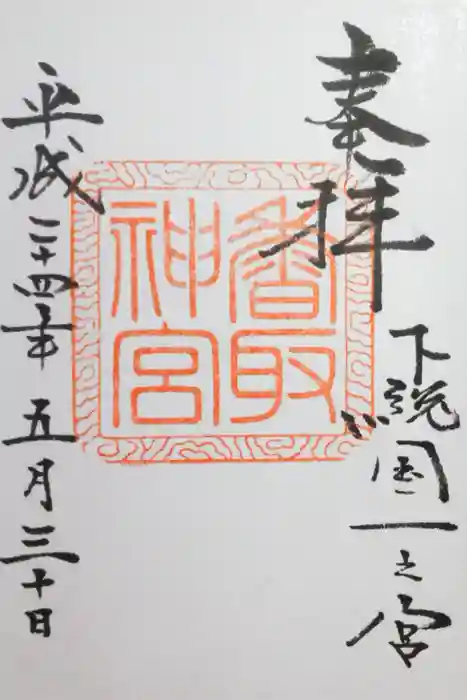 奉拝
下総国一之宮
香取
神宮
平成二十四年五月三十日